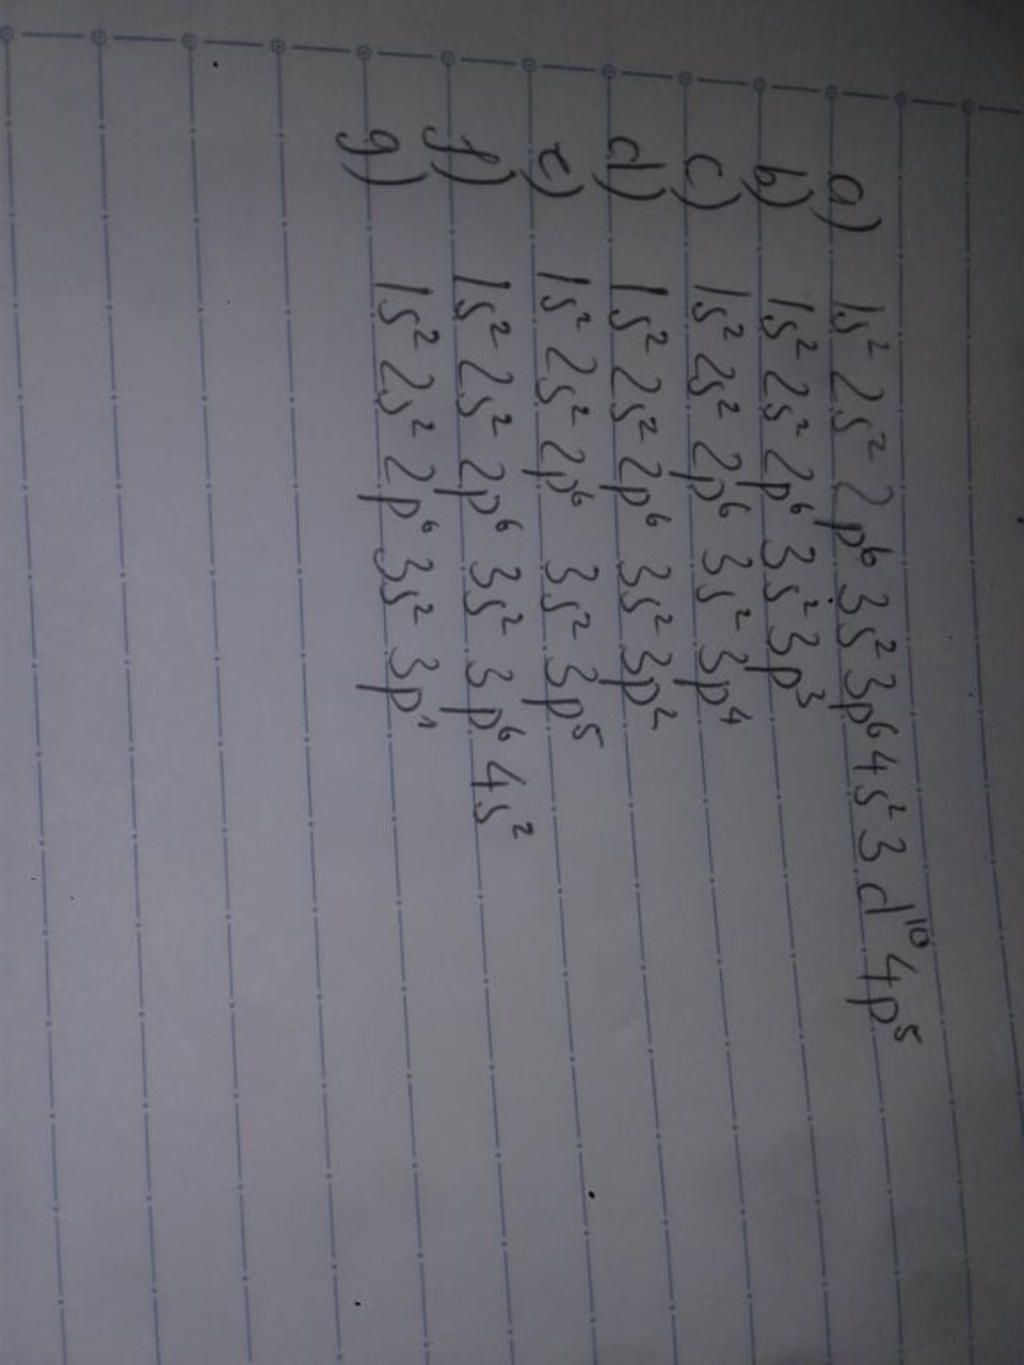 a) 1s² 2s² 2p⁶ 3s² 3p⁶ 4s² 3d¹⁰ 4p⁵
b) 1s² 2s² 2p⁶ 3s² 3p³
c) 1s² 2s² 2p⁶ 3s² 3p⁴
d) 1s² 2s² 2p⁶ 3s² 3p²
e) 1s² 2s² 2p⁶ 3s² 3p⁵
f) 1s² 2s² 2p⁶ 3s² 3p⁶ 4s²
g) 1s² 2s² 2p⁶ 3s² 3p¹